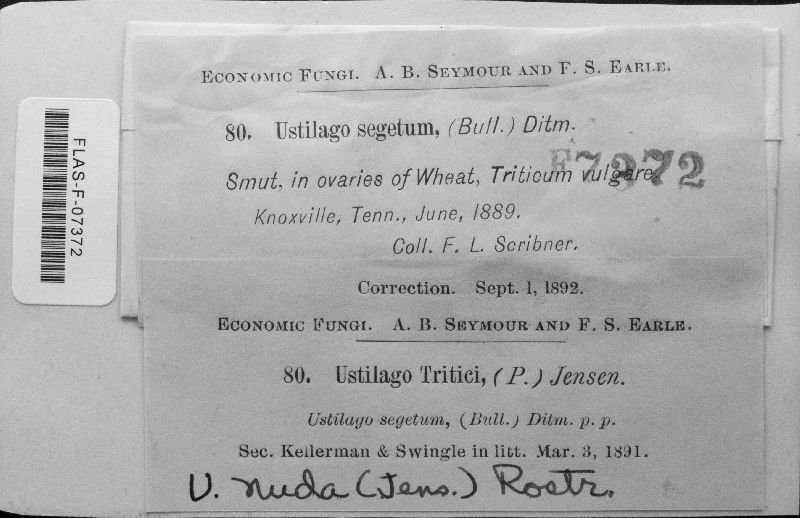 ECONOMIC FUNGI. A. B. SEYMOUR AND F. S. EARLE.
80. Ustilago segetum, (Bull.) Ditm.
F7372
Smut, in ovaries of Wheat, Triticum vulgare.
Knoxville, Tenn., June, 1889.
Coll. F. L. Scribner.
FLAS-F-07372
Correction. Sept. 1, 1892.
ECONOMIC FUNGI. A. B. SEYMOUR AND F. S. EARLE.
80. Ustilago Tritici, (P.) Jensen.
Ustilago segetum, (Bull.) Ditm. p. p.
Sec. Kellerman & Swingle in litt. Mar. 3, 1891.
U. nuda (Jens.) Rostr.